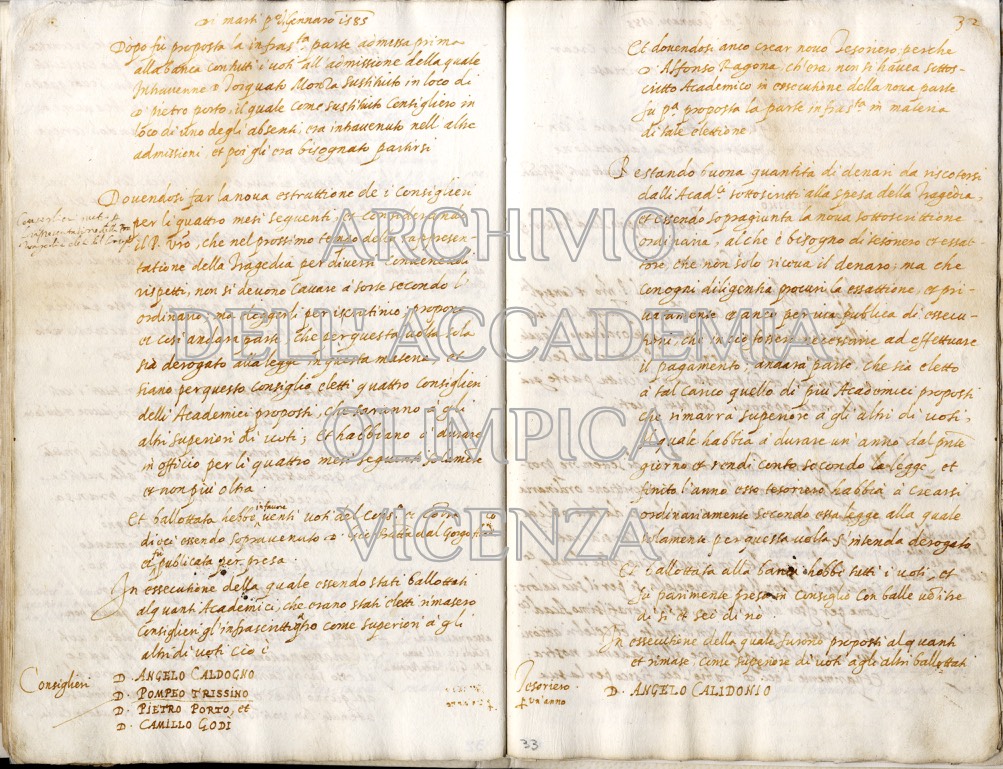 Di marti p.º Gennaro 1585
Dopo fù proposta la infras.ta parte admissa prima
alla banca con tutti i voti, all'admissione della quale
Intravenne D. Torquato Monza sustituto in loco di
D. Pietro porto, il quale come sustituto Consigliero in
loco di uno degli absenti, era intravenuto nell'altre
admissioni, et poi gli era bisognato partirsi
Dovendosi far la nova estruttione de i Consiglieri
per li quattro mesi seguenti, et considerando
Il P. Vro, che nel prossimo tempo della rappresen-
tatione della Tragedia per diversi convenevoli
rispetti, non si devono cavare à sorte secondo l'
ordinario, ma eleggerli per iscrutinio, propone
et cosi andarà parte, che per questa volta sola
sia derogato alla legge in questa materia, et
siano per questo Consiglio eletti quattro Consiglieri
delli Academici proposti, che saranno à gli
altri superiori di voti; et habbiano à durare
in officio per li quattro mesi seguenti solamente
et non più oltra.
Et ballottata hebbe in favore venti voti del Consiglio, contra
dieci essendo sopravenuto D. Gio: Batta dal Gorgo
et fù publicata per presa
In essecutione della quale essendo stati ballottati
alquanti Academici, che erano stati eletti rimasero
Consiglieri gl'infrascritti come superiori à gli
altri di voti cio è
Consiglieri
D. ANGELO CALDOGNO
D. POMPEO TRISSINO
D. PIETRO PORTO, et
D. CAMILLO GODI
32
Et dovendosi anco crear novo Tesoriero, perche
D. Alfonso Ragona, ch'era, non si havea sottos-
critto Academico in essecutione della nova parte
fu p.a proposta la parte infras.ta in materia
di tale elettione
Restando buona quantità di denari da riscotersi
dalli Acad.ci sottoscritti alla spesa della Tragedia,
et essendo sopragiunta la nova sottoscrittione
ordinaria, al che è bisogno di tesorero et essat-
tore, che non solo riceva il denaro, ma che
con ogni diligentia procuri la essattione, et pri-
vatamente et anco per via publica di essecu-
tioni, che in ciò fossero necessarie ad effettuare
il pagamento, andarà parte, che sia eletto
a tal carico quello di più Academici proposti
che rimarrà superiore à gli altri di voti,
Il quale habbia à durare un'anno dal pnte
giorno et rendi conto secondo la legge, et
finito l'anno esso tesoriero habbia à crearsi
ordinariamente secondo essa legge alla quale
solamente per questa volta s'intenda derogato
Et ballottata alla banca hebbe tutti i voti, et
fu parimente presa in Consiglio con balle
di si et sei di nò.
In essecutione della quale furono proposti alquanti
et rimase, come superiore di voti à gli altri ballottati
Tesoriero
p un'anno
D. ANGELO CALIDONIO
33
ARCHIVIO
DELL'ACCADEMIA
OLIMPICA
VICENZA